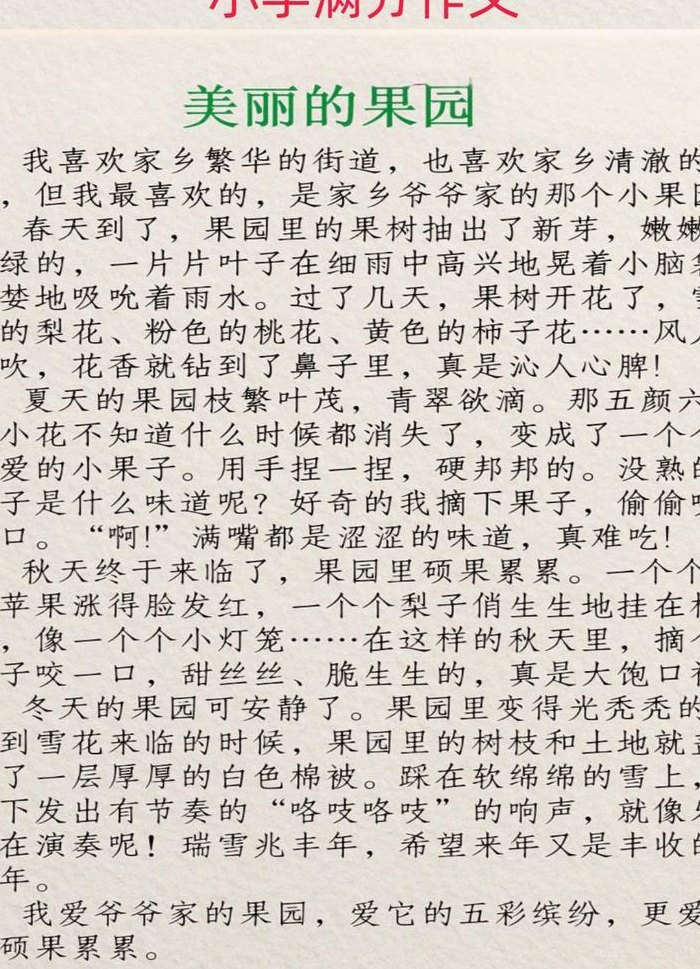 小学满分作文
美丽的果园
我喜欢家乡繁华的街道，也喜欢家乡清澈的
，但我最喜欢的，是家乡爷爷家的那个小果园
春天到了，果园里的果树抽出了新芽，嫩嫩
绿的，一片片叶子在细雨中高兴地晃着小脑袋
婪地吸吮着雨水。过了几天，果树开花了，雪
的梨花、粉色的桃花、黄色的柿子花……风儿
吹，花香就钻到了鼻子里，真是沁人心脾！
夏天的果园枝繁叶茂，青翠欲滴。那五颜六
小花不知道什么时候都消失了，变成了一个个
爱的小果子。用手捏一捏，硬邦邦的。没熟的
子是什么味道呢？好奇的我摘下果子，偷偷
口。“啊！”满嘴都是涩涩的味道，真难吃！
秋天终于来临了，果园里硕果累累。一个个
苹果涨得脸发红，一个个梨子俏生生地挂在
，像一个个小灯笼……在这样的秋天里，摘个
子咬一口，甜丝丝、脆生生的，真是大饱口
冬天的果园可安静了。果园里变得光秃秃的
到雪花来临的时候，果园里的树枝和土地就盖
了一层厚厚的白色棉被。踩在软绵绵的雪上，
下发出有节奏的“咯吱咯吱”的响声，就像
在演奏呢！瑞雪兆丰年，希望来年又是丰收的
年。
我爱爷爷家的果园，爱它的五彩缤纷，更爱
硕果累累。